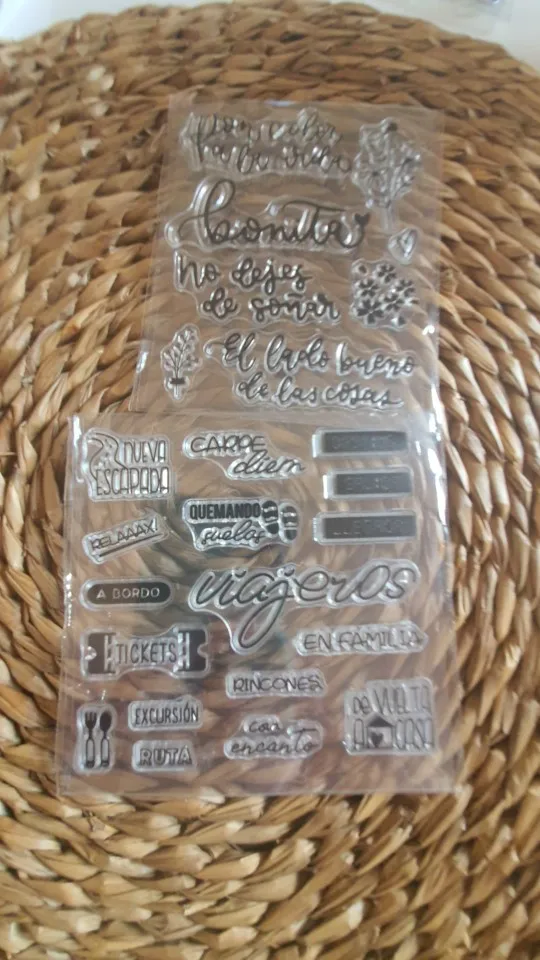 bonita
No dejes
de soñar
El lado bueno
de las cosas
NUEVA
ESCAPADA
CARPE
diem
RELAAAX!
QUEMANDO
suelas
A BORDO
viajeros
TICKETS
EN FAMILIA
RINCONES
EXCURSIÓN
RUTA
con
encanto
DE VUELTA
A CASA